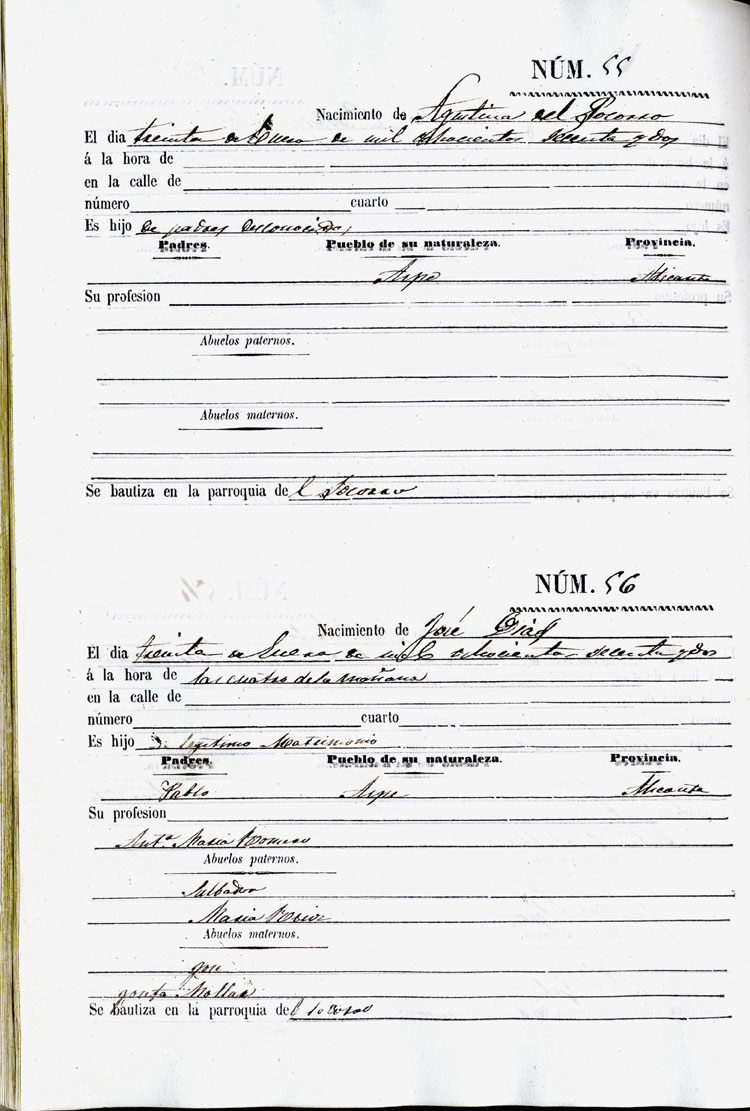 NÚM. 55
Nacimiento de Agustina del Socorro
El dia treinta de Enero de mil ochocientos sesenta y dos
á la hora de
en la calle de
número cuarto
Es hijo de padres desconocidos
Padres. Pueblo de su naturaleza. Provincia.
Aspe Alicante
Su profesion
Abuelos paternos.
Abuelos maternos.
Se bautiza en la parroquia del Socorro
NÚM. 56
Nacimiento de José Diaz
El dia treinta de Enero de mil ochocientos sesenta y dos
á la hora de las cuatro de la mañana
en la calle de
número cuarto
Es hijo de legitimo Matrimonio
Padres. Pueblo de su naturaleza. Provincia.
Pablo Aspe Alicante
Su profesion
Antª Maria Romero
Abuelos paternos.
Salbador
Maria
Abuelos maternos.
Jose
Josefa Mollar
Se bautiza en la parroquia del Socorro